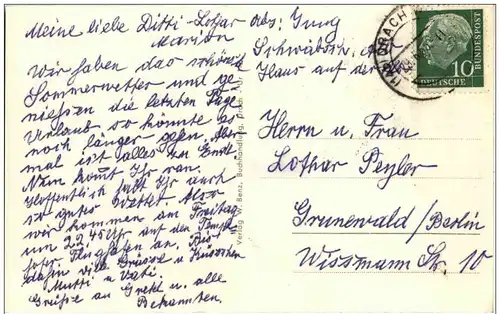 Meine liebe Ditti - Lothar
Marion
Wir haben das schönste
Sommerwetter und ge-
niessen die letzten Tage
Urlaub so könnte es
noch länger gehn. Aber
mal ist alles zu End
Nun kommt Ihr ran.
Hoffentlich habt Ihr auch
so gutes Wetter. Also
wir kommen am Freitag
um 22.45 Uhr auf den
Flughafen an. Bis
dahin viele Grüsse u. Küsschen
Mutti u. Vati.
Grüsse an Gretel u. alle
Bekannten.
Abs: Jung
Haus auf der
Verlag W. Benz, Buchhandlung,
Herrn u. Frau
Lothar Peyler
Grunewald/Berlin
Wissmann Str. 10
10
DEUTSCHE
BUNDESPOST